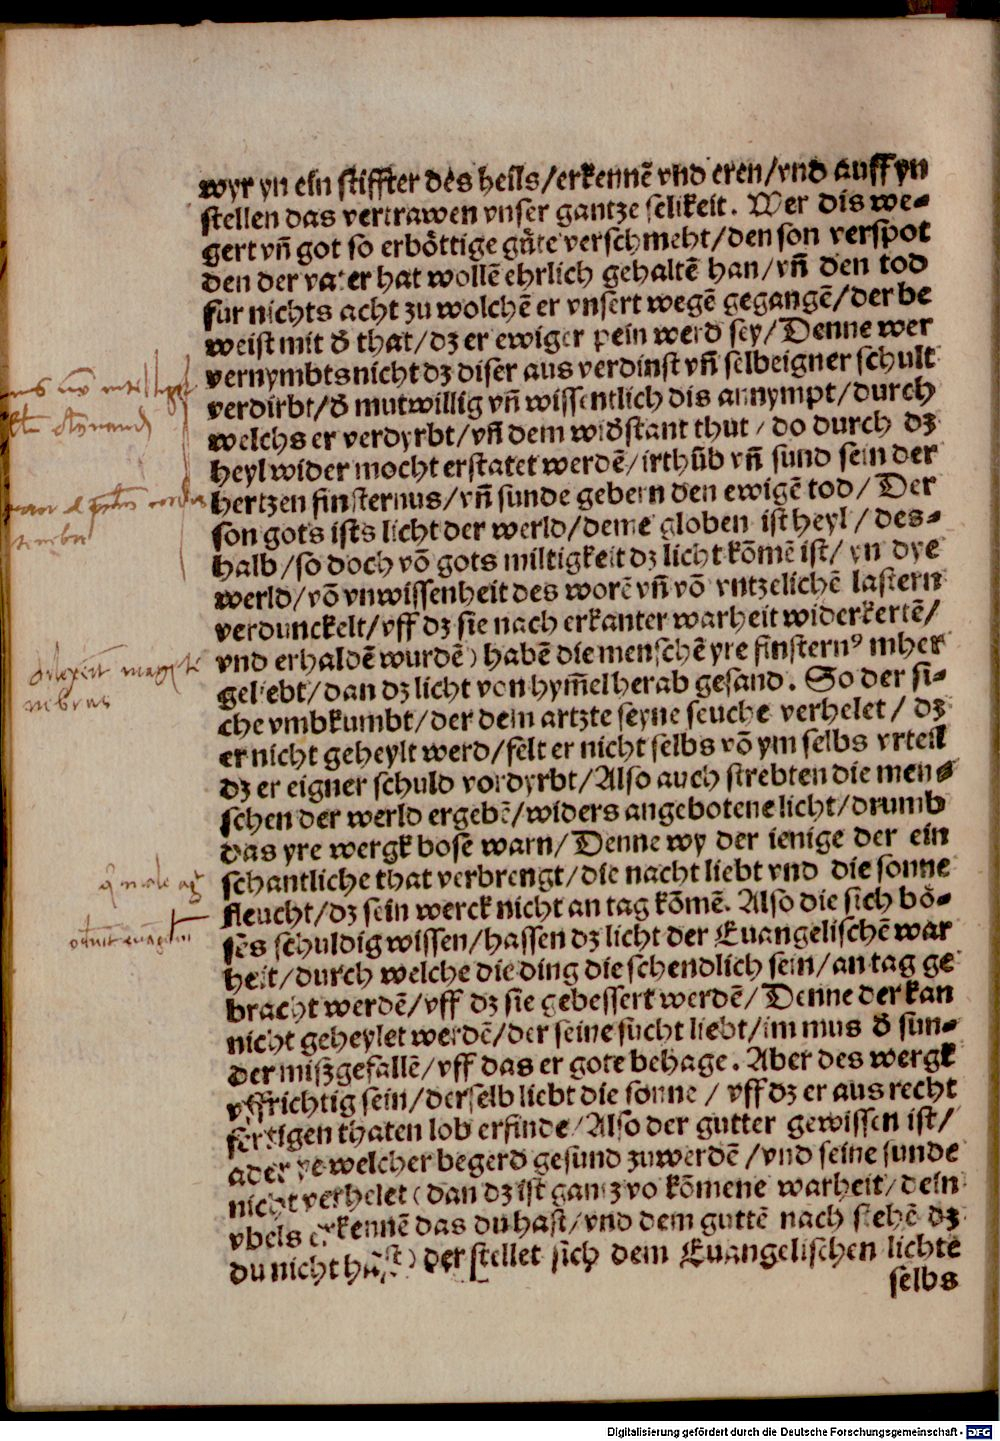 wyr yn ein stiffter des heils/erkennē vnd eren/vnd auff yn
stellen das vertrawen vnser gantze selikeit. Wer dis we⸗
gert vn̄ got so erböttige güte verschmeht/den son verspot
den der vater hat wollē ehrlich gehaltē han/vn̄ den tod
fur nichts acht zu wolchē er vnsert wegē gegangē/der be
weist mit d̄ that/dz er ewiger pein werd sey/Denne wer
vernymbts nicht dz diser aus verdinst vn̄ selbeigner schult
verdirbt/d̄ mutwillig vn̄ wissentlich dis annympt/durch
welchs er verdyrbt/vn̄ dem wid̄stant thut/do durch dz
heyl wider mocht erstatet werdē/irthūb vn̄ sund sein der
hertzen finsternus/vn̄ sunde gebern den ewigē tod/Der
son gots ists licht der werld/deme globen ist heyl/des⸗
halb/so doch vō gots miltigkeit dz licht kōmē ist/yn dye
werld/vō vnwissenheit des worē vn̄ vō vntzelichē lastern
verdunckelt/vff dz sie nach erkanter warheit widerkertē/
vnd erhaldē wurdē) habē die menschē yre finsternꝰ mher
geliebt/dan dz licht von hym̄el herab gesand. So der si⸗
che vmbkumbt/der dem artzte seyne seuche verhelet/dz
er nicht geheylt werd/felt er nicht selbs vō ym selbs vrteil
dz er eigner schuld vordyrbt/Also auch strebten die men⸗
schen der werld ergebē/widers angebotene licht/drumb
das yre wergk bose warn/Denne wy der ienige der ein
schantliche that verbrengt/die nacht liebt vnd die sonne
fleucht/dz sein werck nicht an tag kōmē. Also die sich bö⸗
ses schuldig wissen/hassen dz licht der Euangelischē war
heit/durch welche die ding die schendlich sein/an tag ge
bracht werdē/vff dz sie gebessert werdē/Denne der kan
nicht geheylet werdē/der seine sucht liebt/im mus d̄ sun⸗
der miszgefallē/vff das er gote behage. Aber des wergk
vffrichtig sein/derselb liebt die sonne/vff dz er aus recht
fertigen thaten lob erfinde/Also der gutter gewissen ist/
ader ye welcher begerd gesund zuwerdē/vnd seine sunde
nicht verhelet (dan dz ist gantz vo kōmene warheit/dein
vbels erkennē das du hast/vnd dem guttē nach stehē dz
du nicht hast) der stellet sich dem Euangelischen lichte
selbs
Digitalisierung gefördert durch die Deutsche Forschungsgemeinschaft - DFG